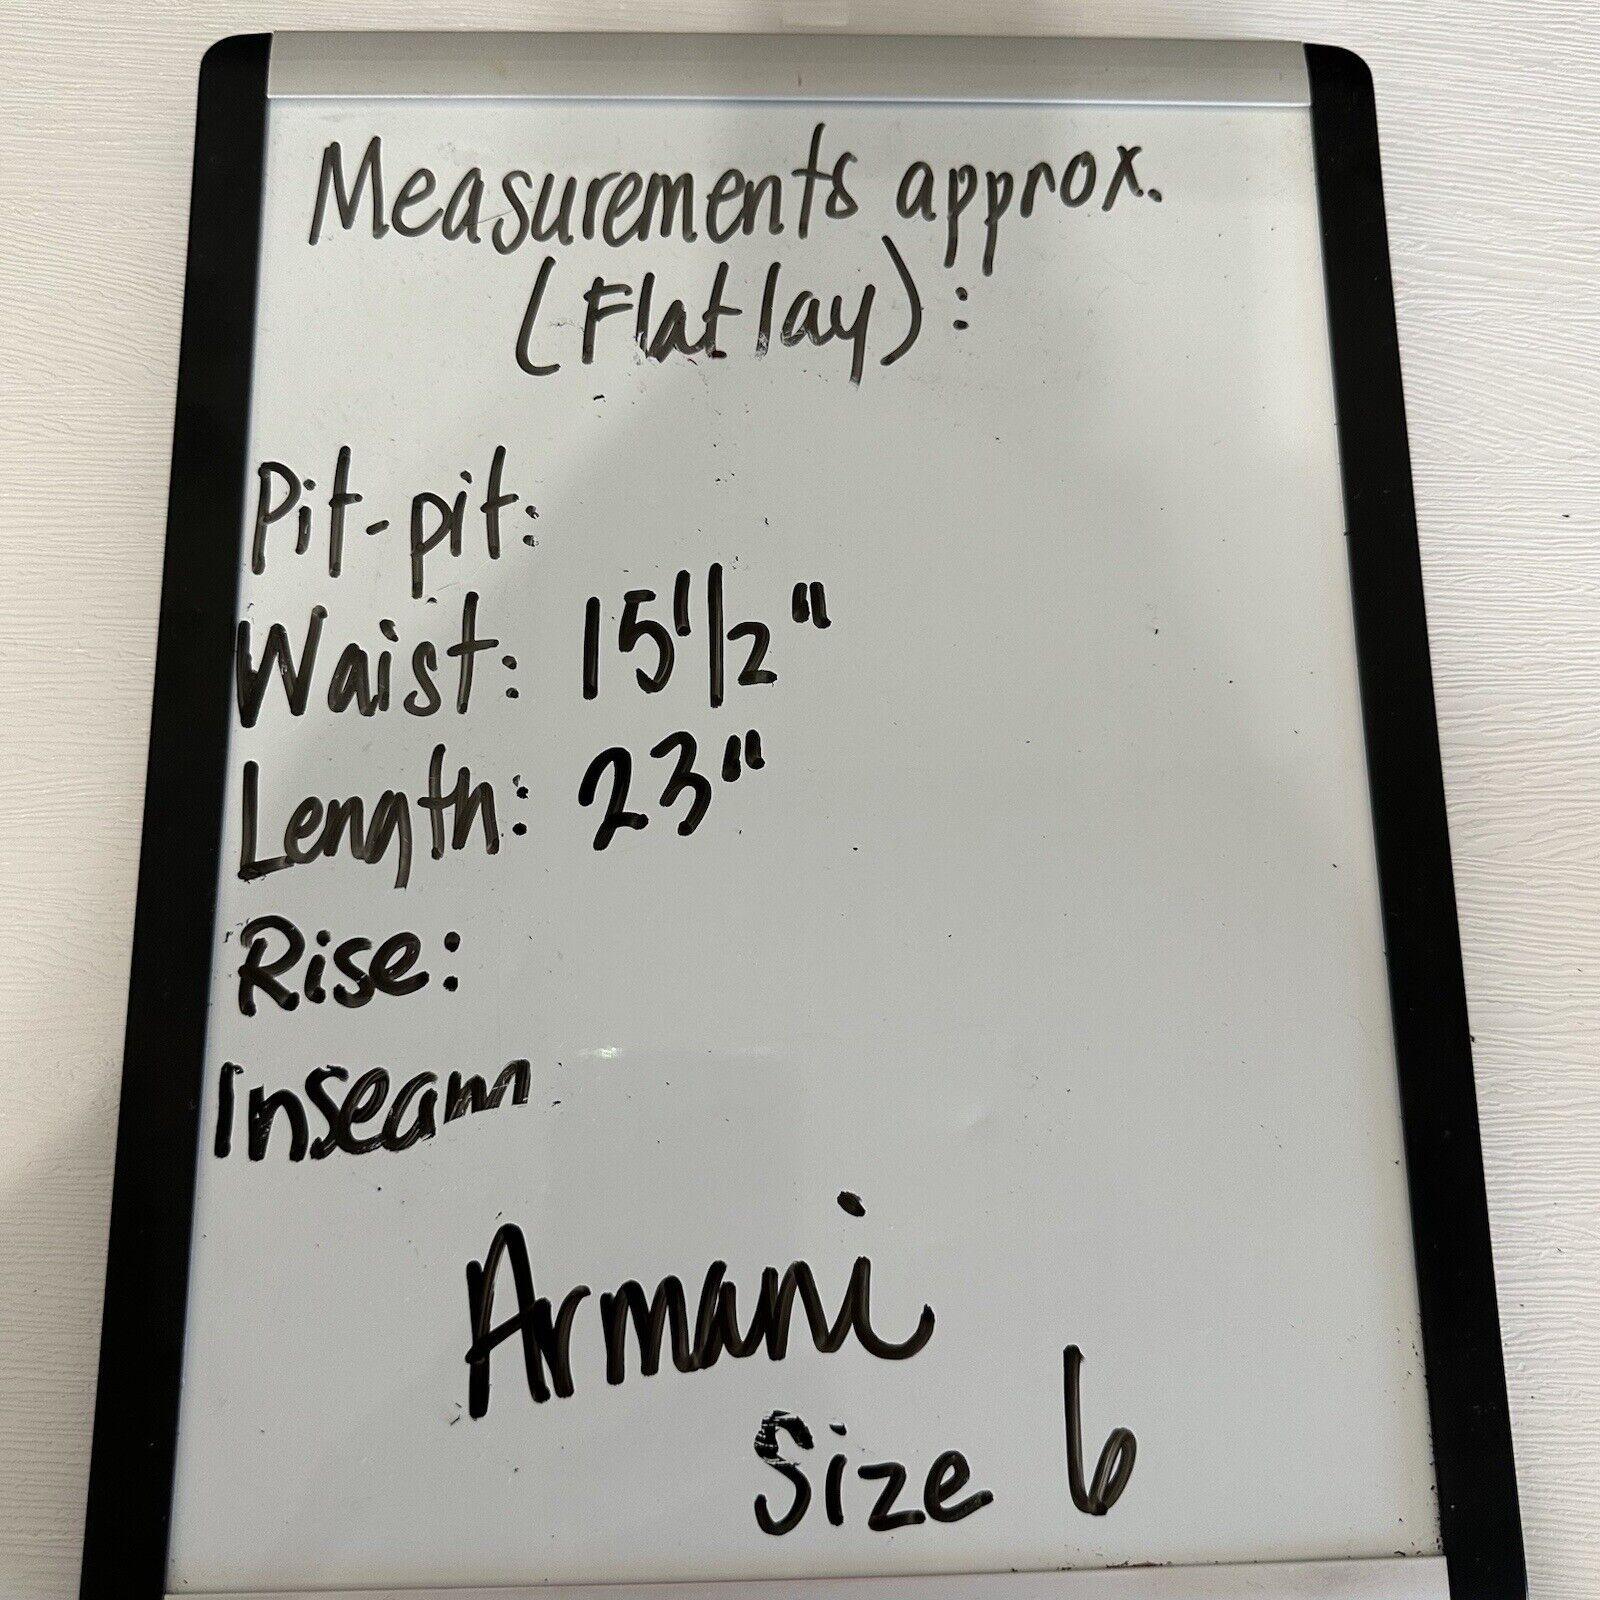 Measurements approx.
(Flat lay):
Pit-pit:
Waist: 15 1/2"
Length: 23"
Rise:
Inseam
Armani
Size 6